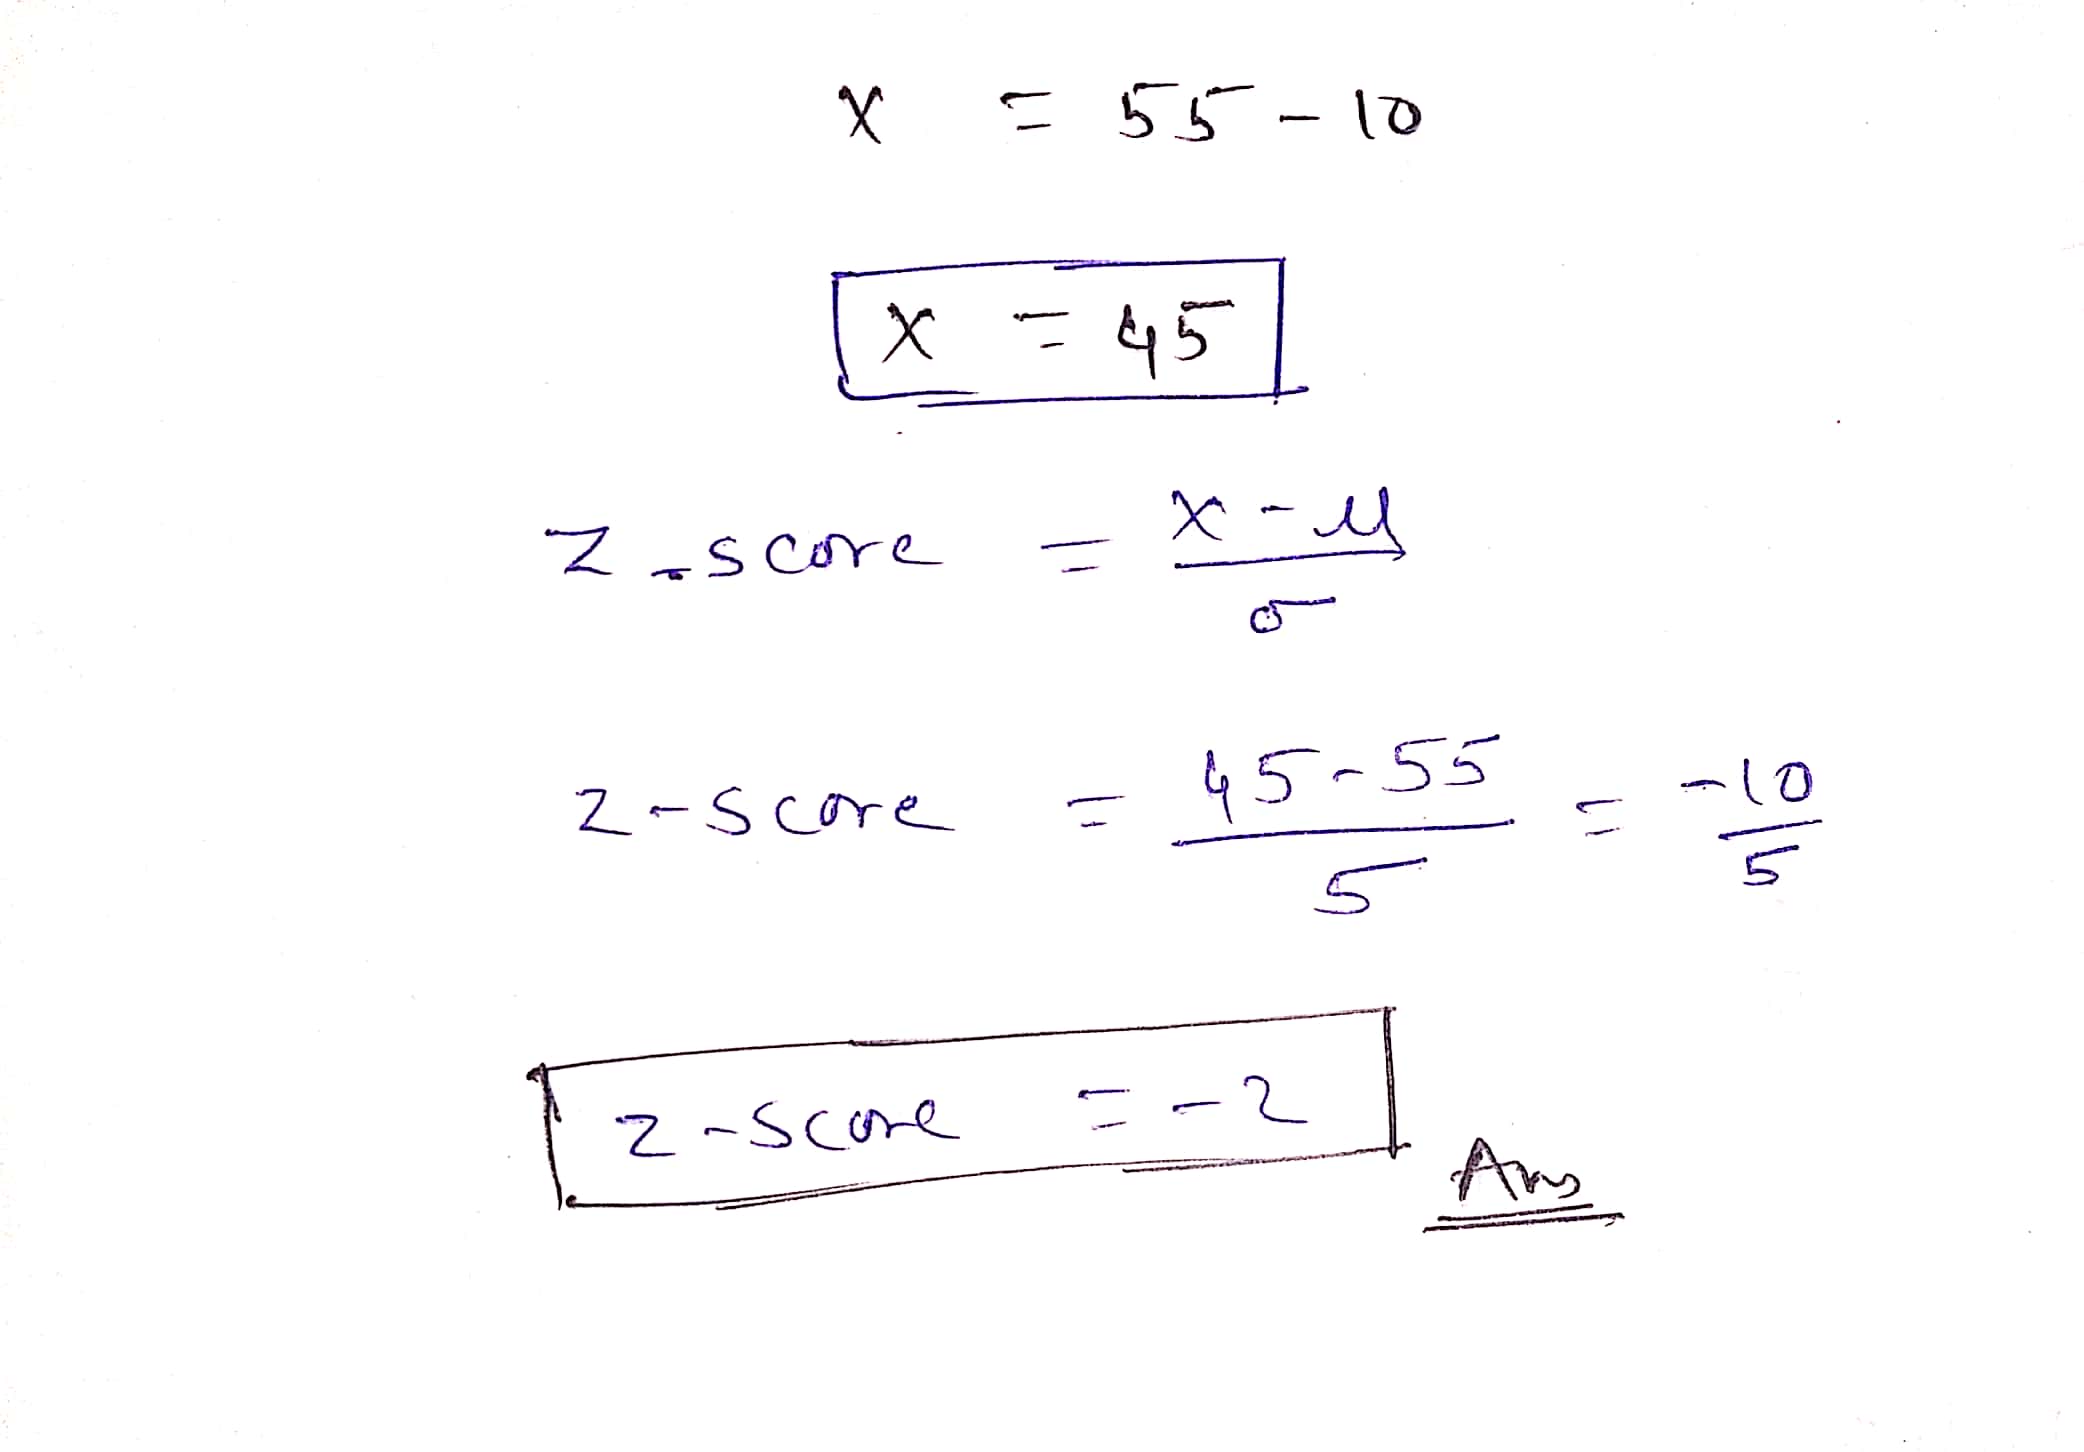 x = 55 - 10
x = 45
z - score = x - μ / σ
z - score = 45 - 55 / 5 = -10 / 5
z - score = -2
Ans